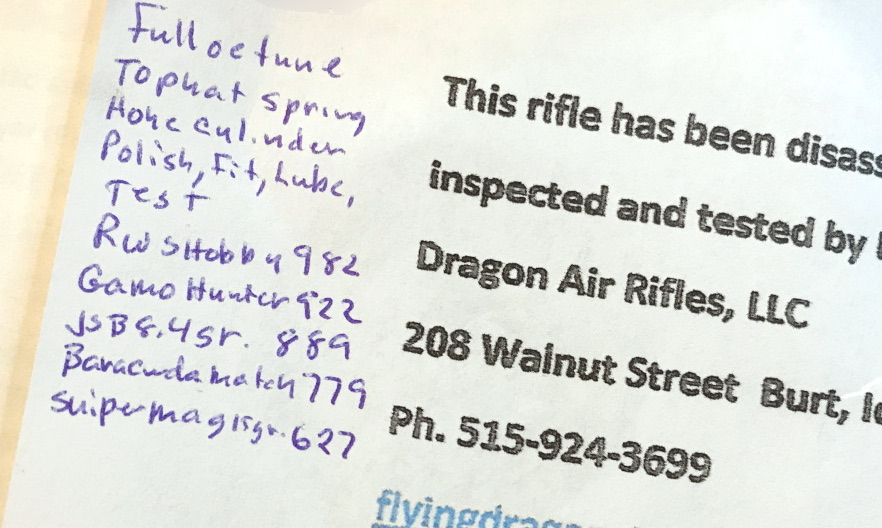 Full oc tune
Tophat spring
Hone cylinder
Polish, Fit, Lube,
Test
RWS Hobby 982
Gamo Hunter 922
JSB 8.4 gr. 889
Baracuda match 779
Snipermag 15gr. 627
This rifle has been disass
inspected and tested by
Dragon Air Rifles, LLC
208 Walnut Street Burt, Io
Ph. 515-924-3699
flyingdrag